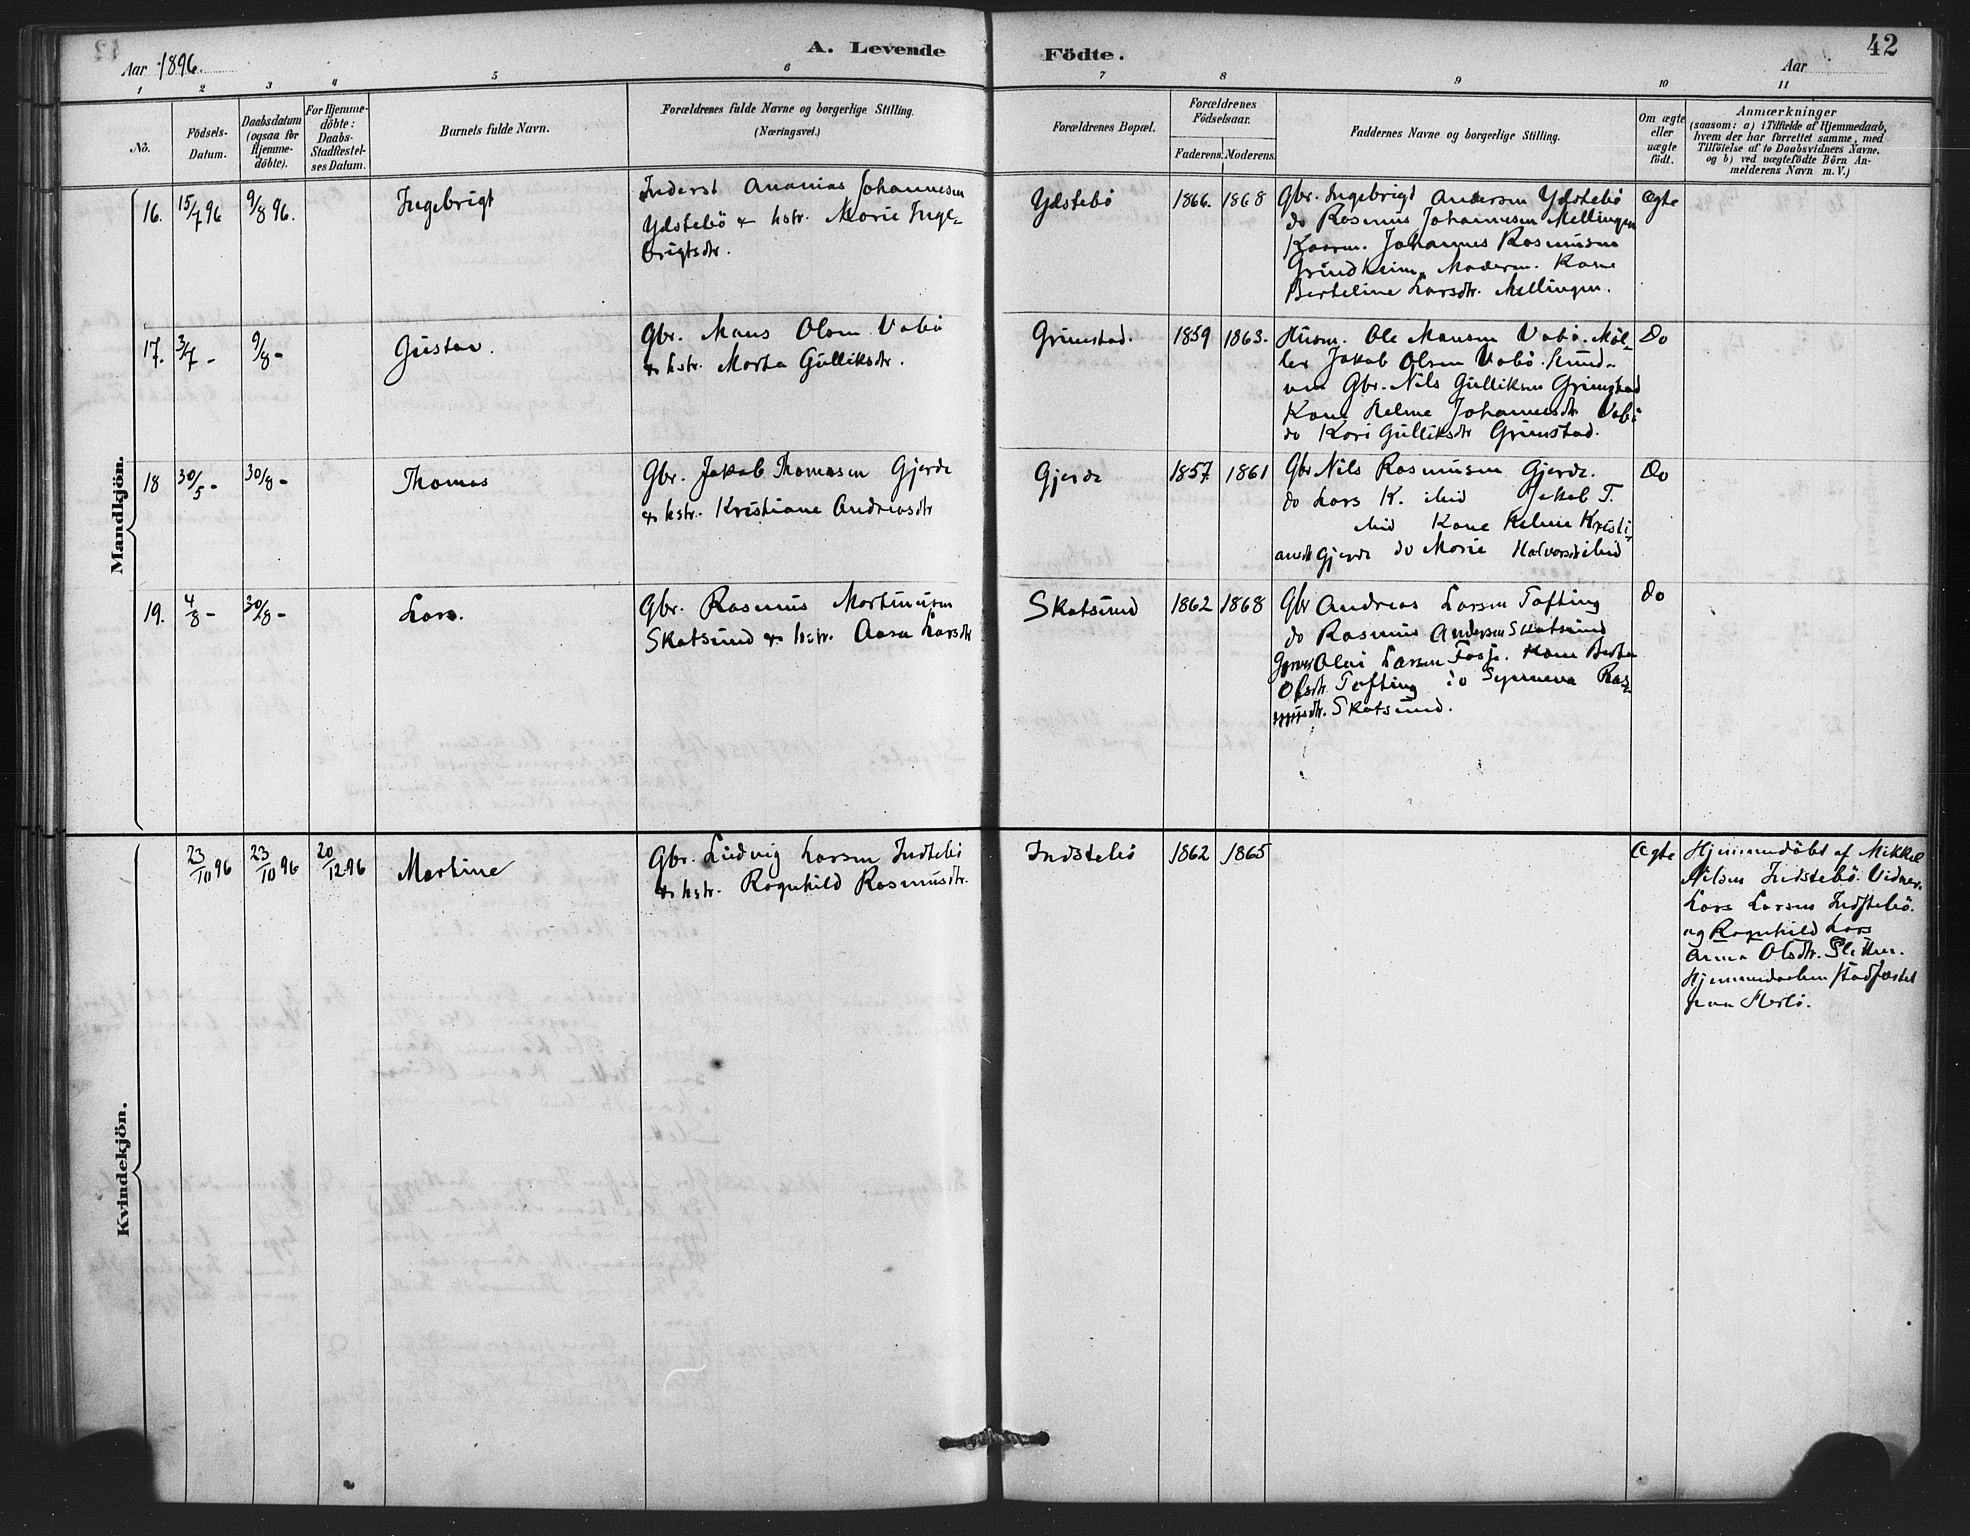 A. Levende Födte.
42
Aar 1896.
Aar
1 2 3 4 5 6 7 8 9 10 11
No.
Födsels-
Datum.
Daabsdatum
(ogsaa for
Hjemme-
döbte).
For Hjemme-
döbte:
Daabs-
Stadfæstel-
ses Datum.
Barnets fulde Navn.
Forældrenes fulde Navne og borgerlige Stilling.
(Næringsvei.)
Forældrenes Bopæl.
Forældrenes
Födselsaar.
Faderens. Moderens.
Faddernes Navne og borgerlige Stilling.
Om ægte
eller
uægte
födt.
Anmærkninger
(saasom: a) i Tilfælde af Hjemmedaab,
hvem der har forrettet samme, med
Tilföielse af to Daabsvidners Navne.
og b) ved uægtefödte Börn An-
melderens Navn m. V.)
Mandkjön.
16. 15/7 96 9/8 96. Ingebrigt
Inderst Ananias Johannesen
Ydstebö & hstr. Marie Inge-
brigtsdtr.
Ydstebö 1866. 1868
Gbr. Ingebrigt Andersen Ydstebö
do Rasmus Johannesen Mellingen
Kaarm. Johannes Rasmusen
Grindheim, Maderm. Kone
Berteline Larsdtr. Mellingen.
Ægte
17. 3/7 - 9/8 - Gustav.
Gbr. Mans Olsen Vabö
& hstr. Marta Gulliksdtr.
Grimstad. 1859 1863.
Husm. Ole Mansen Vabö. Møl-
ler Jakob Olsen Vabö.
Gbr. Nils Gulliksen Grimstad
Kone Helene Johannesdtr Vabö
do Kari Gulliksdtr Grimstad.
Do
18 30/5 - 30/8 - Thomas
Gbr. Jakob Thomasen Gjerde
& hstr. Kristiane Andreasdtr
Gjerde 1857. 1861
Gbr Nils Rasmusen Gjerde.
do Lars K. ibid Jakob T.
ibid Kone Helene Kristi-
ansdtr Gjerde do Marie Halvorsdtr ibid
Do
19. 4/8 - 30/8 - Lars.
Gbr. Rasmus Martinusen
Skatsund & hstr. Aasa Larsdtr
Skatsund 1862 1868
Gbr Andreas Larsen Tofting
do Rasmus Andersen Skatsund
Olai Larsen Fosse. Kone Berta
Olsdtr. Tofting do Synneva Ras-
musdtr. Skatsund.
do
Kvindekjön.
23/10 96 23/10 96 20/12 96 Martine
Gbr. Ludvig Larsen Indstebö
& hstr. Ragnhild Rasmusdtr.
Indstebö 1862 1865
Ægte
Hjemmedöbt af Mikkel
Nilsen Indstebö. Vidner.
Lars Larsen Indstebö.
og Ragnhild Lars
Anna Olsdtr. Sletten.
Hjemmedaaben stadfæstet
paa Herlö.